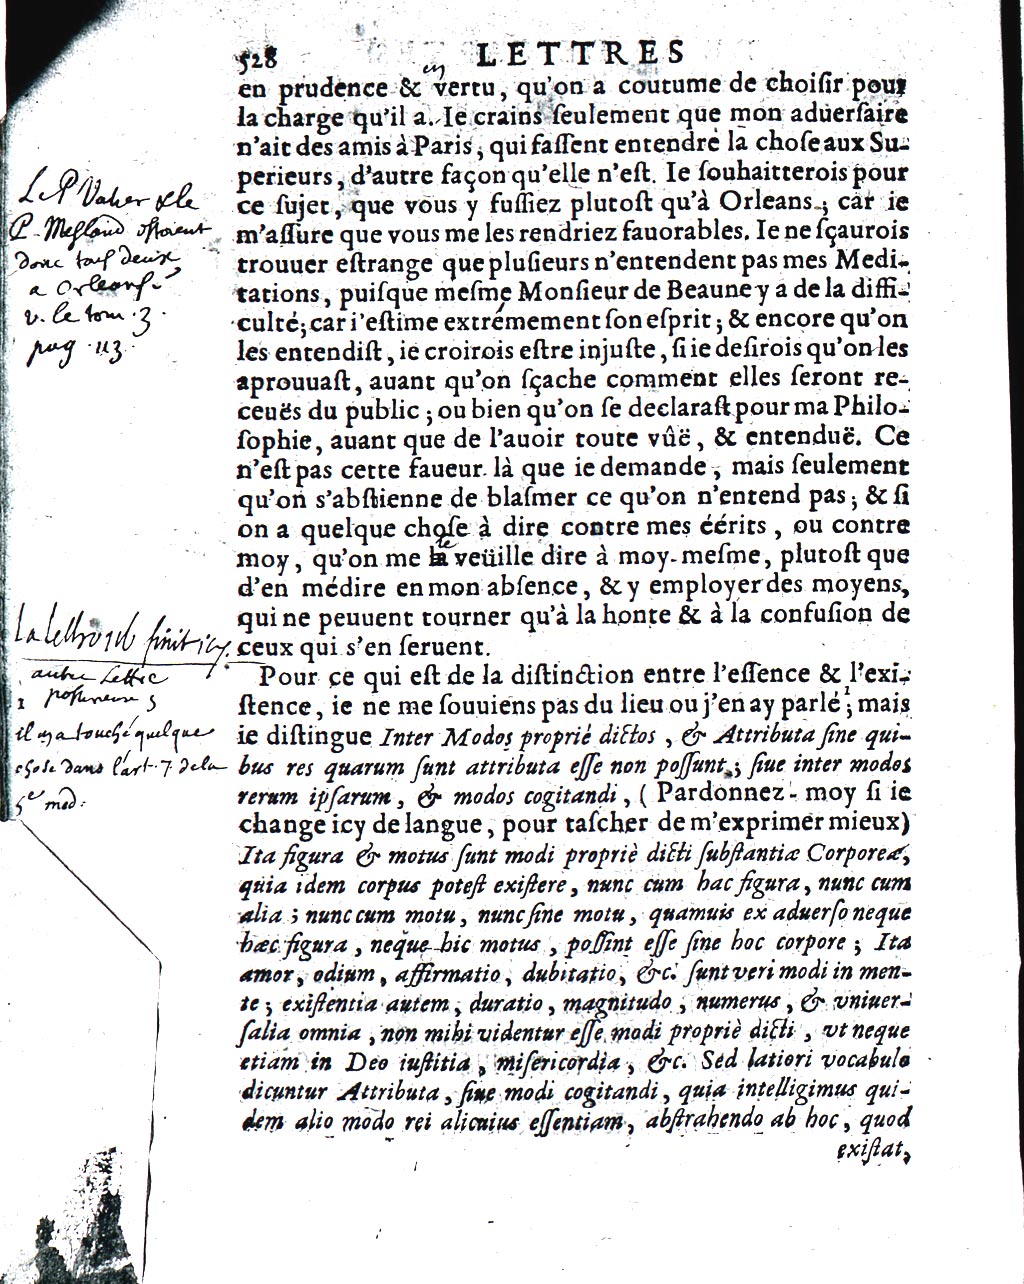 528 LETTRES
en
en prudence & vertu, qu'on a coutume de choiſir pour
la charge qu'il a. Ie crains ſeulement que mon aduerſaire
n'ait des amis à Paris, qui faſſent entendre la choſe aux Su-
perieurs, d'autre façon qu'elle n'eſt. Ie ſouhaitterois pour
ce ſujet, que vous y fuſſiez plutoſt qu'à Orleans; car ie
m'aſſure que vous me les rendriez fauorables. Ie ne ſçaurois
trouuer eſtrange que pluſieurs n'entendent pas mes Medi-
tations, puiſque meſme Monſieur de Beaune y a de la diffi-
culté; car i'eſtime extrémement ſon eſprit; & encore qu'on
les entendiſt, ie croirois eſtre injuſte, ſi ie deſirois qu'on les
aprouuaſt, auant qu'on ſçache comment elles ſeront re-
ceuës du public; ou bien qu'on ſe declaraſt pour ma Philo-
ſophie, auant que de l'auoir toute vûë, & entenduë. Ce
n'eſt pas cette faueur là que ie demande, mais ſeulement
qu'on s'abſtienne de blaſmer ce qu'on n'entend pas; & ſi
on a quelque choſe à dire contre mes éérits, ou contre
le
moy, qu'on me la veüille dire à moy-meſme, plutoſt que
d'en médire en mon abſence, & y employer des moyens,
qui ne peuuent tourner qu'à la honte & à la confuſion de
ceux qui s'en ſeruent.
Pour ce qui eſt de la diſtinction entre l'eſſence & l'exi-
ſtence, ie ne me ſouuiens pas du lieu ou j'en ay parlé 1; mais
ie diſtingue Inter Modos propriè dictos, & Attributa ſine qui-
bus res quarum ſunt attributa eſſe non poſſunt; ſiue inter modos
rerum ipſarum, & modos cogitandi, (Pardonnez-moy ſi ie
change icy de langue, pour taſcher de m'exprimer mieux)
Ita figura & motus ſunt modi propriè dicti ſubſtantiæ Corporeæ,
quia idem corpus poteſt exiſtere, nunc cum hac figura, nunc cum
alia; nunc cum motu, nunc ſine motu, quamuis ex aduerſo neque
hæc figura, neque hic motus, poſſint eſſe ſine hoc corpore; Ita
amor, odium, affirmatio, dubitatio, &c. ſunt veri modi in men-
te; exiſtentia autem, duratio, magnitudo, numerus, & vniuer-
ſalia omnia, non mihi videntur eſſe modi propriè dicti, vt neque
etiam in Deo iuſtitia, miſericordia, &c. Sed latiori vocabulo
dicuntur Attributa, ſiue modi cogitandi, quia intelligimus qui-
dem alio modo rei alicuius eſſentiam, abſtrahendo ab hoc, quod
exiſtat,
Le P Vatier & le
P. Mesland estoient
donc tous deux
a Orleans.
v. le tom. 3.
pag. 113.
La lettre finit icy.
autre Lettre
1 posterieure
il en a touché quelque
chose dans l'art. 7. de la
5e med: